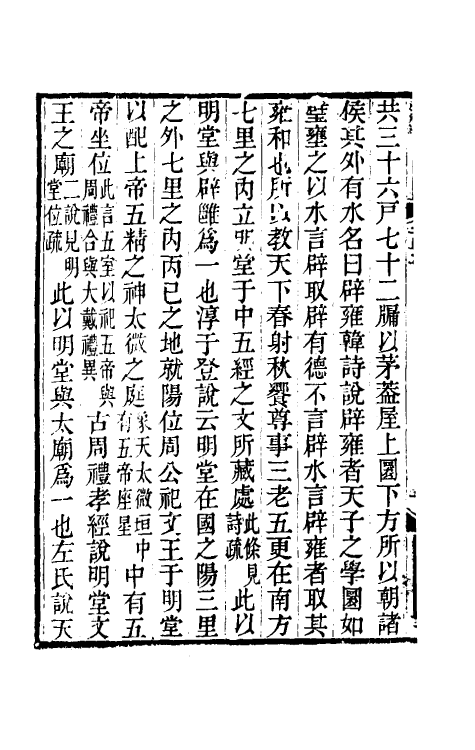 共三十六戸七十二牖以茅葢屋上圓下方所以朝諸
侯其外有水名曰辟雍韓詩說辟雍者天子之學圓如
璧壅之以水言辟取辟有德不言辟水言辟雍者取其
雍和也所以教天下春射秋饗尊事三老五更在南方
七里之內立明堂于中五經之文所藏處此條見詩疏此以
明堂與辟雝爲一也淳于登說云明堂在國之陽三里
之外七里之內丙巳之地就陽位周公祀文王于明堂
以配上帝五精之神太微之庭象天太微垣中有五帝座星中有五
帝坐位此言五室以祀五帝與周禮合與大戴禮異古周禮孝經說明堂文
王之廟二說見明堂位疏此以明堂與太廟爲一也左氏說天